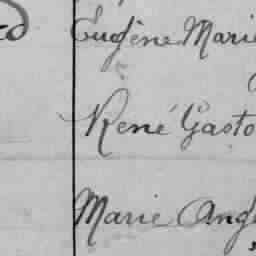 Eugène Marie
René Gasto
Marie Ang